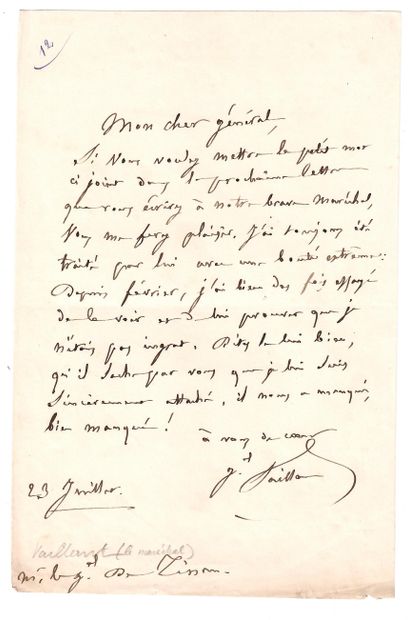 12
Mon cher général,
Si vous voulez mettre le petit mot
ci joint dans la prochaine lettre
que vous écrirez à notre brave Maréchal,
Vous me ferez plaisir. J'ai toujours été
traité par lui avec une bonté extrême.
Depuis février, j'ai bien des fois essayé
de le voir et de lui prouver que je
n'étois pas ingrat. Dites le lui bien,
qu'il sache par vous que je lui suis
sincèrement attaché, il nous a manqué,
bien manqué !
à vous de cœur
gal Vaillant
23 Juillet.
Vaillant (le maréchal)
Mr le gal De